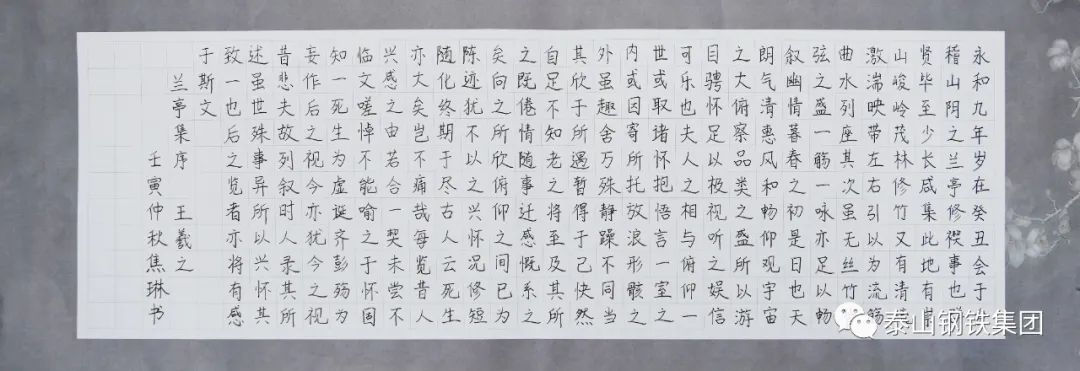 永和九年岁在癸丑会于
稽山阴之兰亭修禊事也
贤毕至少长咸集此地有
山峻岭茂林修竹又有清
激湍映带左右引以为流觞
曲水列座其次虽无丝竹
弦之盛一觞一咏亦足以畅
叙幽情暮春之初是日也天
朗气清惠风和畅仰观宇宙
之大俯察品类之盛所以游
目骋怀足以极视听之娱信
可乐也夫人之相与俯仰一
世或取诸怀抱悟言一室之
内或因寄所托放浪形骸之
外虽趣舍万殊静躁不同当
其欣于所遇暂得于己快然
自足不知老之将至及其所
之既倦情随事迁感慨系之
矣向之所欣俯仰之间已为
陈迹犹不以之兴怀况修短
随化终期于尽古人云死生
亦大矣岂不痛哉每览昔人
兴感之由若合一契未尝不
临文嗟悼不能喻之于怀固
知一死生为虚诞齐彭殇为
妄作后之视今亦犹今之视
昔悲夫故列叙时人录其所
述虽世殊事异所以兴怀其
致一也后之览者亦将有感
于斯文
兰亭集序 王羲之
壬寅仲秋焦琳书
泰山钢铁集团